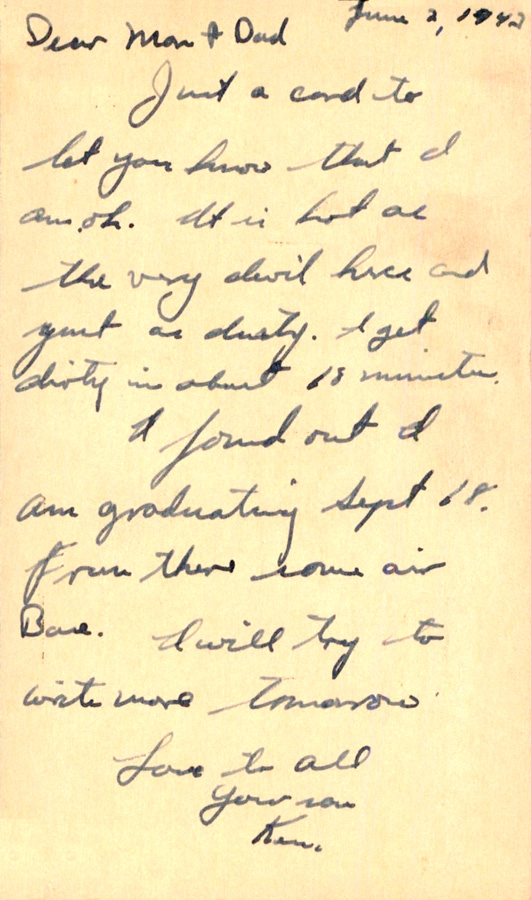 June 2, 1942
Dear Mom + Dad
Just a card to
let you know that I
am ok. It is hot as
the very devil here and
just as dusty. I get
dirty in about 15 minutes.
I found out I
am graduating Sept 18.
From there some air
Base. I will try to
write more tomorrow
Love to all
Your son
Ken.